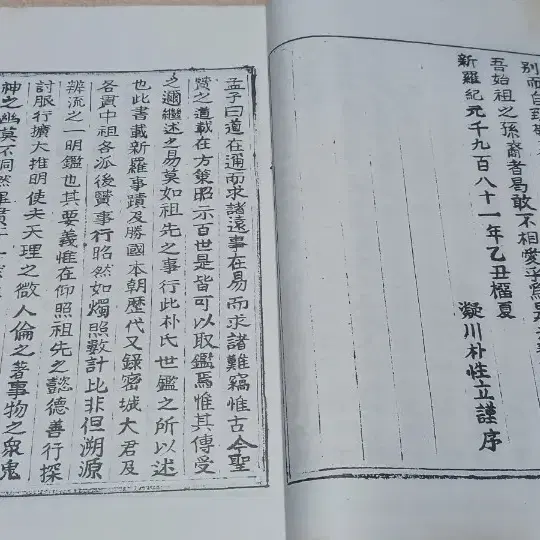 別而自
吾始祖之孫裔者曷敢不相愛乎爲是
新羅紀元千九百八十一年乙丑榴夏
凝川朴性立謹序
孟子曰道在邇而求諸遠事在易而求諸難竊惟古今聖
贒之道載在方策昭示百世是皆可以取鑑焉惟其傳受
之邇繼述之易莫如祖先之事行此朴氏世鑑之所以述
也此書載新羅事蹟及勝國本朝歷代又錄密城大君及
各貫中祖各派後贒事行昭然如燭照數計比非但溯源
辨流之一明鑑也其要義惟在仰照祖先之懿德善行探
討服行擴大推明使夫天理之微人倫之著事物之衆鬼
神之幽莫不同然